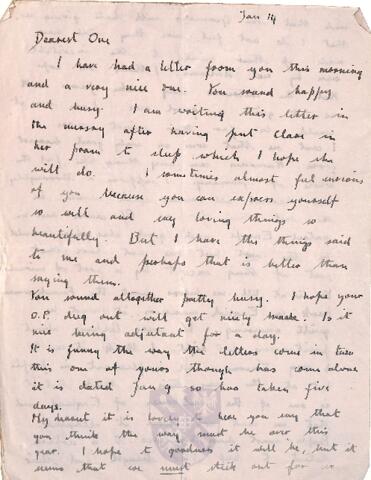 Jan 14
Dearest One
I have had a letter from you this morning
and a very nice one. You sound happy
and busy. I am writing this letter in
the nursery after having put Clare in
her pram to sleep which I hope she
will do. I sometimes almost feel envious
of you because you can express yourself
so well and say loving things so
beautifully. But I have the things said
to me and perhaps that is better than
saying them.
You sound altogether pretty busy. I hope your
O.P. dug out will get nicely made. Is it
nice being adjutant for a day.
It is funny the way the letters come in twos
this one of yours though has come alone
it is dated Jan 9 so has taken five
days.
My dearest it is lovely to hear you say that
you think the war must be over this
year. I hope to goodness it will be, but it
seems that we must stick out for